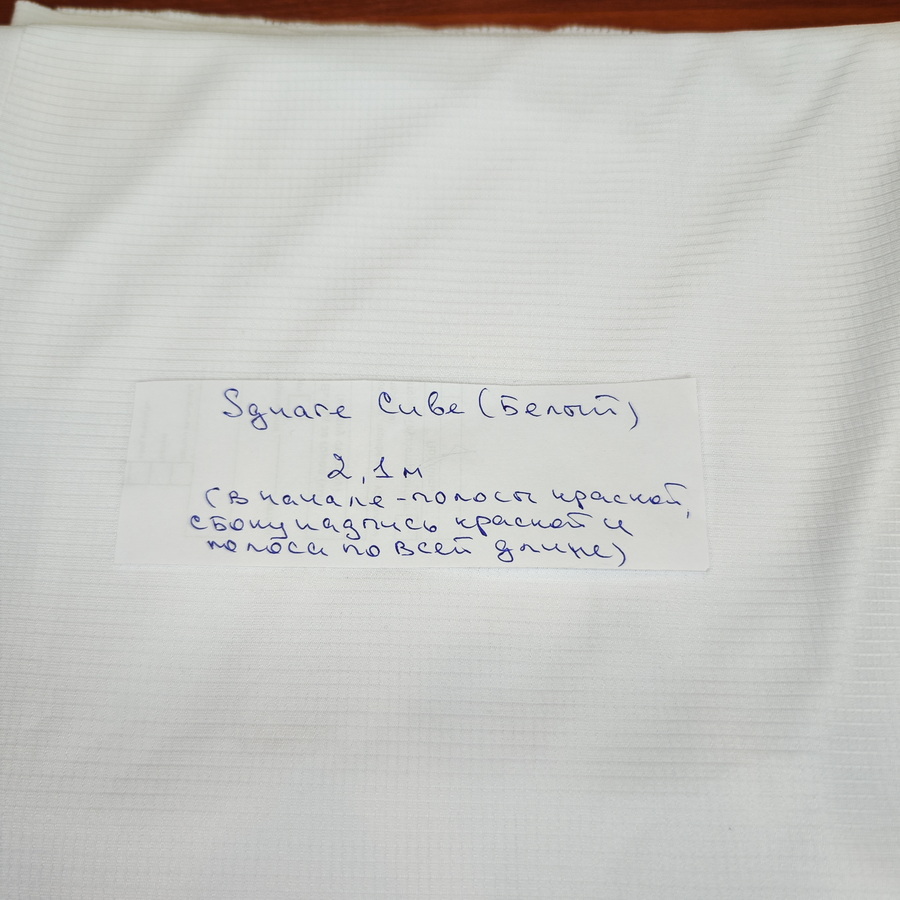 Square Cube (Белый)
2,1 м
(в начале - полосы краской,
сбоку надпись краской и
полоса по всей длине)